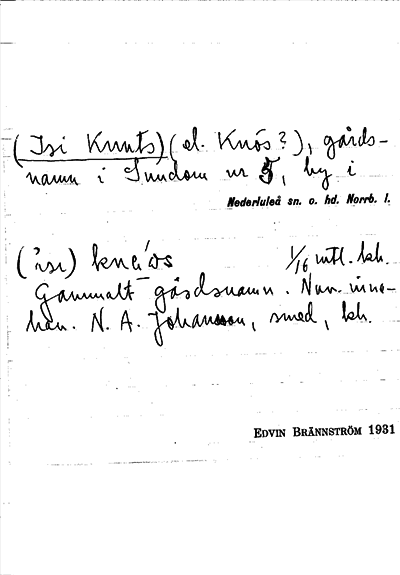 (Isi Knuts) (el. Knös?), gårds-
namn i Sundom nr 5, by i
Nederluleå sn. o. hd. Norrb. l.
('ɪsɪ) knɛ́ʼøs 1/16 mtl. kh.
Gammalt gårdsnamn. Nuv. inne-
hav. N. A. Johansson, smed, kh.
EDVIN BRÄNNSTRÖM 1931